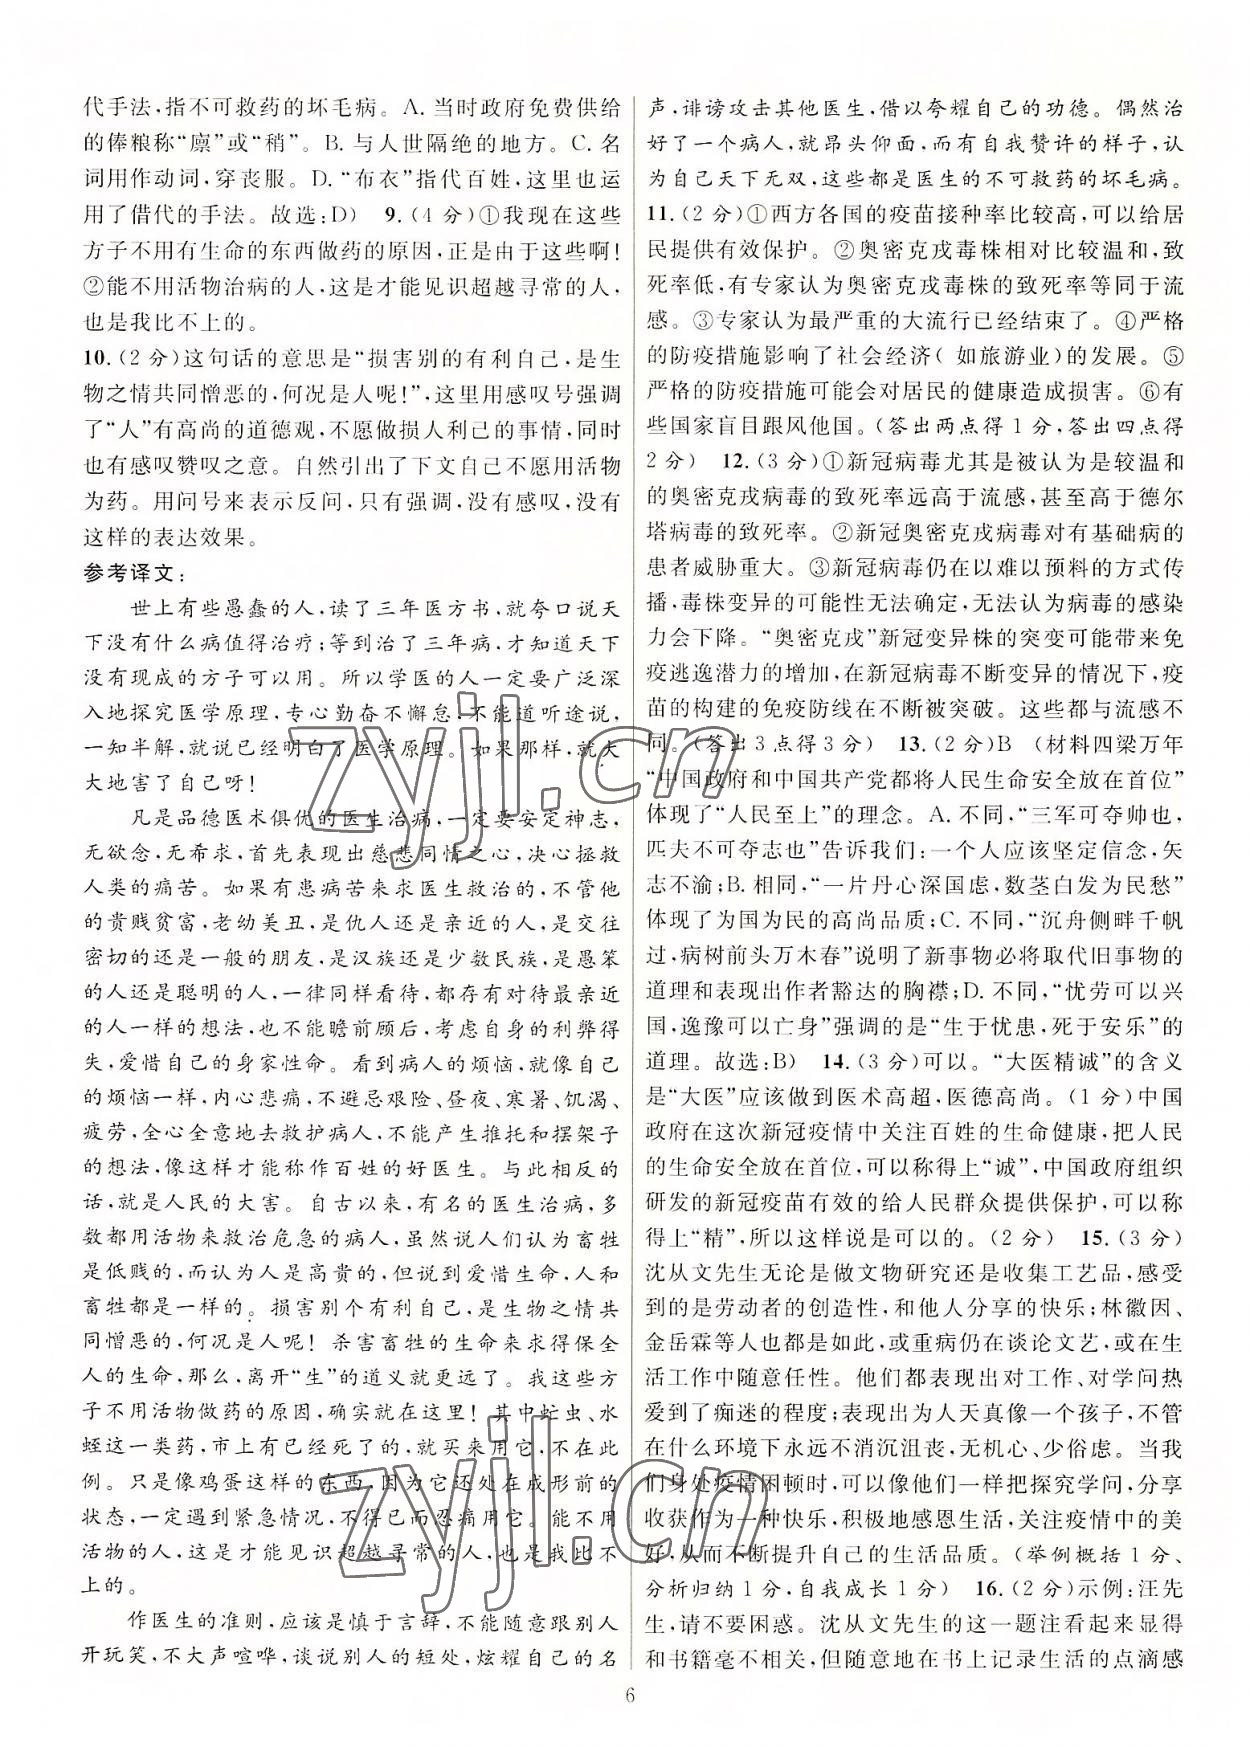 代手法,指不可救药的坏毛病。A. 当时政府免费供给
的俸粮称“廪”或“稍”。B. 与人世隔绝的地方。C. 名
词用作动词,穿丧服。D. “布衣”指代百姓,这里也运
用了借代的手法。故选:D) 9. (4 分)①我现在这些
方子不用有生命的东西做药的原因,正是由于这些啊!
②能不用活物治病的人,这是才能见识超越寻常的人,
也是我比不上的。
10. (2 分)这句话的意思是“损害别的有利自己,是生
物之情共同憎恶的,何况是人呢!”,这里用感叹号强调
了“人”有高尚的道德观,不愿做损人利己的事情,同时
也有感叹赞叹之意。自然引出了下文自己不愿用活物
为药。用问号来表示反问,只有强调,没有感叹,没有
这样的表达效果。
参考译文:
世上有些愚蠢的人,读了三年医方书,就夸口说天
下没有什么病值得治疗;等到治了三年病,才知道天下
没有现成的方子可以用。所以学医的人一定要广泛深
入地探究医学原理,专心勤奋不懈怠,不能道听途说,
一知半解,就说已经明白了医学原理。如果那样,就大
大地害了自己呀!
凡是品德医术俱优的医生治病,一定要安定神志,
无欲念,无希求,首先表现出慈悲同情之心,决心拯救
人类的痛苦。如果有患病苦来求医生救治的,不管他
的贵贱贫富,老幼美丑,是仇人还是亲近的人,是交往
密切的还是一般的朋友,是汉族还是少数民族,是愚笨
的人还是聪明的人,一律同样看待,都存有对待最亲近
的人一样的想法,也不能瞻前顾后,考虑自身的利弊得
失,爱惜自己的身家性命。看到病人的烦恼,就像自己
的烦恼一样,内心悲痛,不避忌艰险、昼夜、寒暑、饥渴、
疲劳,全心全意地去救护病人,不能产生推托和摆架子
的想法,像这样才能称作百姓的好医生。与此相反的
话,就是人民的大害。自古以来,有名的医生治病,多
数都用活物来救治危急的病人,虽然说人们认为畜牲
是低贱的,而认为人是高贵的,但说到爱惜生命,人和
畜牲都是一样的。损害别个有利自己,是生物之情共
同憎恶的,何况是人呢!杀害畜牲的生命来求得保全
人的生命,那么,离开“生”的道义就更远了。我这些方
子不用活物做药的原因,确实就在这里!其中虻虫、水
蛭这一类药,市上有已经死了的,就买来用它,不在此
例。只是像鸡蛋这样的东西,因为它还处在成形前的
状态,一定遇到紧急情况,不得已而忍痛用它。能不用
活物的人,这是才能见识超越寻常的人,也是我比不
上的。
作医生的准则,应该是慎于言辞,不能随意跟别人
开玩笑,不大声喧哗,谈说别人的短处,炫耀自己的名
声,诽谤攻击其他医生,借以夸耀自己的功德。偶然治
好了一个病人,就昂头仰面,而有自我赞许的样子,认
为自己天下无双,这些都是医生的不可救药的坏毛病。
11. (2 分)①西方各国的疫苗接种率比较高,可以给居
民提供有效保护。②奥密克戎毒株相对比较温和,致
死率低,有专家认为奥密克戎毒株的致死率等同于流
感。③专家认为最严重的大流行已经结束了。④严格
的防疫措施影响了社会经济( 如旅游业)的发展。⑤
严格的防疫措施可能会对居民的健康造成损害。⑥有
些国家盲目跟风他国。(答出两点得 1 分,答出四点得
2 分) 12. (3 分)①新冠病毒尤其是被认为是较温和
的奥密克戎病毒的致死率远高于流感,甚至高于德尔
塔病毒的致死率。②新冠奥密克戎病毒对有基础病的
患者威胁重大。③新冠病毒仍在以难以预料的方式传
播,毒株变异的可能性无法确定,无法认为病毒的感染
力会下降。“奥密克戎”新冠变异株的突变可能带来免
疫逃逸潜力的增加,在新冠病毒不断变异的情况下,疫
苗的构建的免疫防线在不断被突破。这些都与流感不
同。(答出 3 点得 3 分) 13. (2 分)B (材料四梁万年
“中国政府和中国共产党都将人民生命安全放在首位”
体现了“人民至上”的理念。A. 不同,“三军可夺帅也,
匹夫不可夺志也”告诉我们:一个人应该坚定信念,矢
志不渝;B. 相同,“一片丹心深国虑,数茎白发为民愁”
体现了为国为民的高尚品质;C. 不同,“沉舟侧畔千帆
过,病树前头万木春”说明了新事物必将取代旧事物的
道理和表现出作者豁达的胸襟;D. 不同,“忧劳可以兴
国,逸豫可以亡身”强调的是“生于忧患,死于安乐”的
道理。故选:B) 14. (3 分)可以。“大医精诚”的含义
是“大医”应该做到医术高超,医德高尚。(1 分)中国
政府在这次新冠疫情中关注百姓的生命健康,把人民
的生命安全放在首位,可以称得上“诚”,中国政府组织
研发的新冠疫苗有效的给人民群众提供保护,可以称
得上“精”,所以这样说是可以的。(2 分) 15. (3 分)
沈从文先生无论是做文物研究还是收集工艺品,感受
到的是劳动者的创造性,和他人分享的快乐;林徽因、
金岳霖等人也都是如此,或重病仍在谈论文艺,或在生
活工作中随意任性。他们都表现出对工作、对学问热
爱到了痴迷的程度;表现出为人天真像一个孩子,不管
在什么环境下永远不消沉沮丧,无机心、少俗虑。当我
们身处疫情困顿时,可以像他们一样把探究学问,分享
收获作为一种快乐,积极地感恩生活,关注疫情中的美
好,从而不断提升自己的生活品质。(举例概括 1 分、
分析归纳 1 分,自我成长 1 分) 16. (2 分)示例:汪先
生,请不要困惑。沈从文先生的这一题注看起来显得
和书籍毫不相关,但随意地在书上记录生活的点滴感
6
zyjl.cn
zyjl.cn